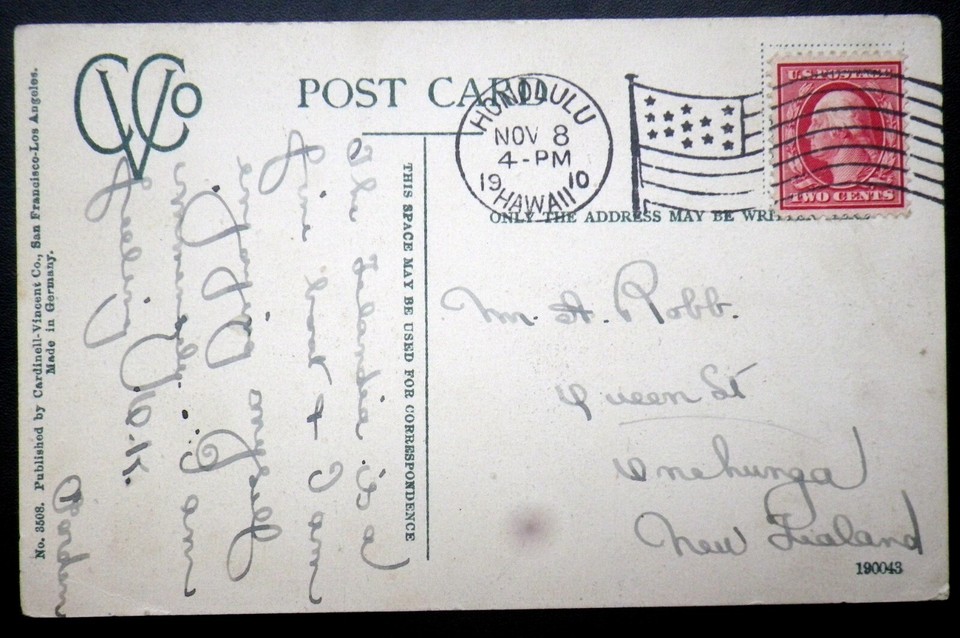 CVCo
POST CARD
HONOLULU
NOV 8
4-PM
1910
HAWAII
U.S. POSTAGE
TWO CENTS
THIS SPACE MAY BE USED FOR CORRESPONDENCE
ONLY THE ADDRESS MAY BE WRITTEN HERE
The Zealandia is a
fine boat & I am
enjoying myself
immensely. I am
feeling O.K.
Mr. A. Robb.
Queen St
Onehunga
New Zealand
190043
No. 3508. Published by Cardinell-Vincent Co., San Francisco-Los Angeles.
Made in Germany.